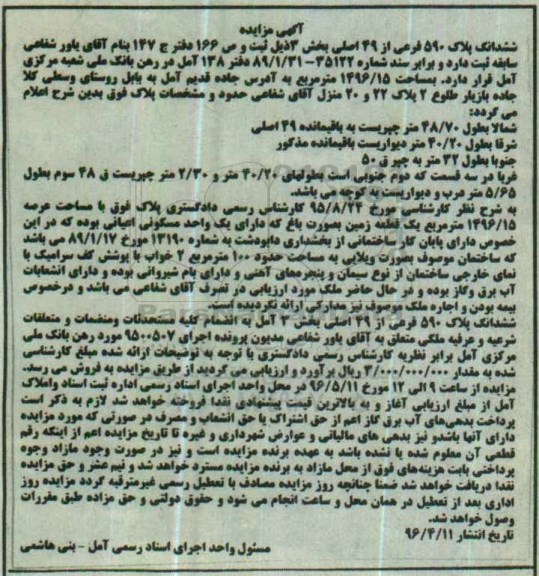 آگهی مزایده
ششدانگ پلاک ۵۹۰ فرعی از ۴۹ اصلی بخش ۳ ذیل ثبت و ص ۱۶۶ دفتر ج ۱۴۷ بنام آقای یاور شفاعی
سابقه ثبت دارد و برابر سند شماره ۳۵۱۲۲-۸۹/۱/۳۱ دفتر ۱۳۸ آمل در رهن بانک ملی شعبه مرکزی
آمل قرار دارد. بمساحت ۱۴۹۶/۱۵ مترمربع به آدرس جاده قدیم آمل به بابل روستای وسطی کلا
جاده بازیار طلوع ۲ پلاک ۲۲ و ۲۰ منزل آقای شفاعی حدود و مشخصات پلاک فوق بدین شرح اعلام
می گردد:
شمالا بطول ۴۸/۷۰ متر چپریست به باقیمانده ۴۹ اصلی
شرقا بطول ۴۰/۲۰ متر دیواریست باقیمانده مذکور
جنوبا بطول ۳۲ متر به چپر ق ۵۰
غربا در سه قسمت که دوم جنوبی است بطولهای ۴۰/۲۰ متر و ۲/۳۰ متر چپریست ق ۴۸ سوم بطول
۵/۶۵ متر درب و دیواریست به کوچه می باشد.
به شرح نظر کارشناسی مورخ ۹۵/۸/۲۴ کارشناس رسمی دادگستری پلاک فوق با مساحت عرصه
۱۴۹۶/۱۵ مترمربع یک قطعه زمین بصورت باغ که دارای یک واحد مسکونی اعیانی بوده که در این
خصوص دارای پایان کار ساختمانی از بخشداری دابودشت به شماره ۱۳۱۹۰ مورخ ۸۹/۱/۱۷ می باشد
که ساختمان موصوف بصورت ویلایی به مساحت حدود ۱۰۰ مترمربع ۲ خواب با پوشش کف سرامیک با
نمای خارجی ساختمان از نوع سیمان و پنجره‌های آهنی و دارای بام شیروانی بوده و دارای انشعابات
آب برق وگاز بوده و در حال حاضر ملک مورد ارزیابی در تصرف آقای شفاعی می باشد و درخصوص
بیمه بودن و اجاره ملک موصوف نیز مدارکی ارائه نگردیده است.
ششدانگ پلاک ۵۹۰ فرعی از ۴۹ اصلی بخش ۳ آمل به انضمام کلیه مستحدثات ومنضمات و متعلقات
شرعیه و عرفیه ملکی متعلق به آقای یاور شفاعی مدیون پرونده اجرای ۹۵۰۰۵۰۷ مورد رهن بانک ملی
مرکزی آمل برابر نظریه کارشناس رسمی دادگستری با توجه به توضیحات ارائه شده مبلغ کارشناسی
شده به مقدار ۳/۰۰۰/۰۰۰/۰۰۰ ریال برآورد و ارزیابی می گردید از طریق مزایده به فروش می رسد.
مزایده از ساعت ۹ الی ۱۲ مورخ ۹۶/۵/۱۱ در محل واحد اجرای اسناد رسمی اداره ثبت اسناد واملاک
آمل از مبلغ ارزیابی آغاز و به بالاترین قیمت پیشنهادی نقدا فروخته خواهد شد لازم به ذکر است
پرداخت بدهی‌های آب برق گاز اعم از حق اشتراک یا حق انشعاب و مصرف در صورتی که مورد مزایده
دارای آنها باشدو نیز بدهی های مالیاتی و عوارض شهرداری و غیره تا تاریخ مزایده اعم از اینکه رقم
قطعی آن معلوم شده یا نشده باشد به عهده برنده مزایده است و نیز در صورت وجود مازاد وجوه
پرداختی بابت هزینه‌های فوق از محل مازاد به برنده مزایده مسترد خواهد شد و نیم عشر و حق مزایده
نقدا دریافت خواهد شد ضمنا چنانچه روز مزایده مصادف با تعطیل رسمی غیرمترقبه گردد مزایده روز
اداری بعد از تعطیل در همان محل و ساعت انجام می شود و حقوق دولتی و حق مزاده طبق مقررات
وصول خواهد شد.
تاریخ انتشار ۹۶/۴/۱۱
مسئول واحد اجرای اسناد رسمی آمل - بنی هاشمی